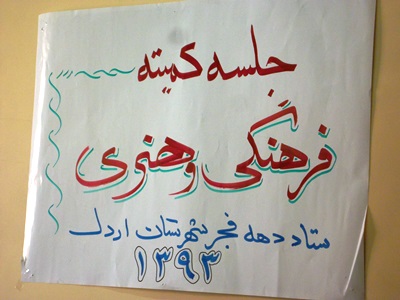 جلسه کمیته
فرهنگی و هنری
ستاد دهه فجر شهرستان اردل
۱۳۹۳